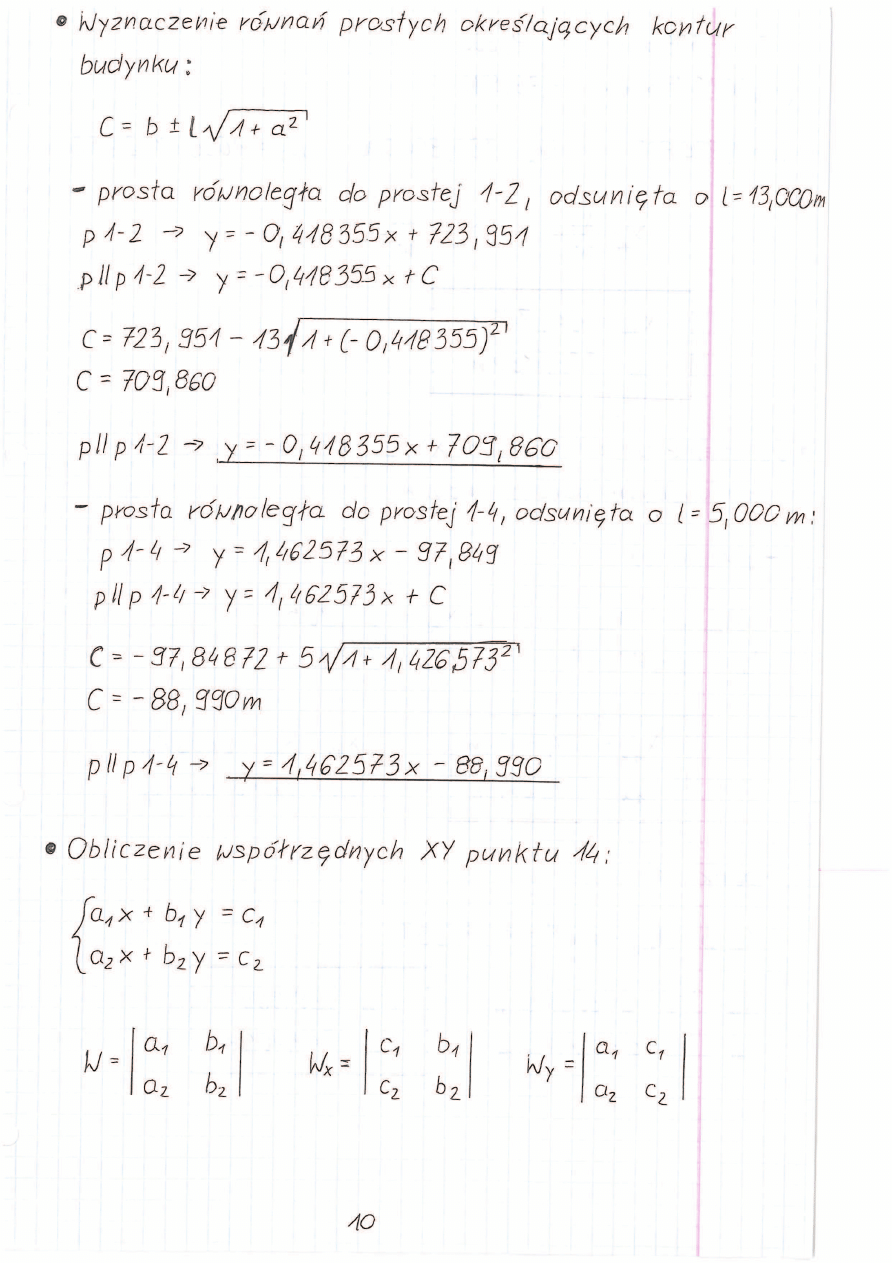 • Wyznaczenie równań prostych określających kontur
budynku:
C = b ± l√(1 + a²)
- prosta równoległa do prostej 1-2, odsunięta o l = 13,000m
p 1-2 → y = - 0,418355x + 723,951
p || p 1-2 → y = -0,418355x + C
C = 723,951 - 13√(1 + (-0,418355)²)
C = 709,860
p || p 1-2 → y = - 0,418355x + 709,860
- prosta równoległa do prostej 1-4, odsunięta o l = 5,000 m:
p 1-4 → y = 1,462573x - 97,849
p || p 1-4 → y = 1,462573x + C
C = -97,84872 + 5√(1 + 1,426573²)
C = -88,990m
p || p 1-4 → y = 1,462573x - 88,990
• Obliczenie współrzędnych XY punktu 14:
{ a₁x + b₁y = c₁
a₂x + b₂y = c₂
W = | a₁ b₁ | Wx = | c₁ b₁ | Wy = | a₁ c₁ |
| a₂ b₂ | | c₂ b₂ | | a₂ c₂ |
10